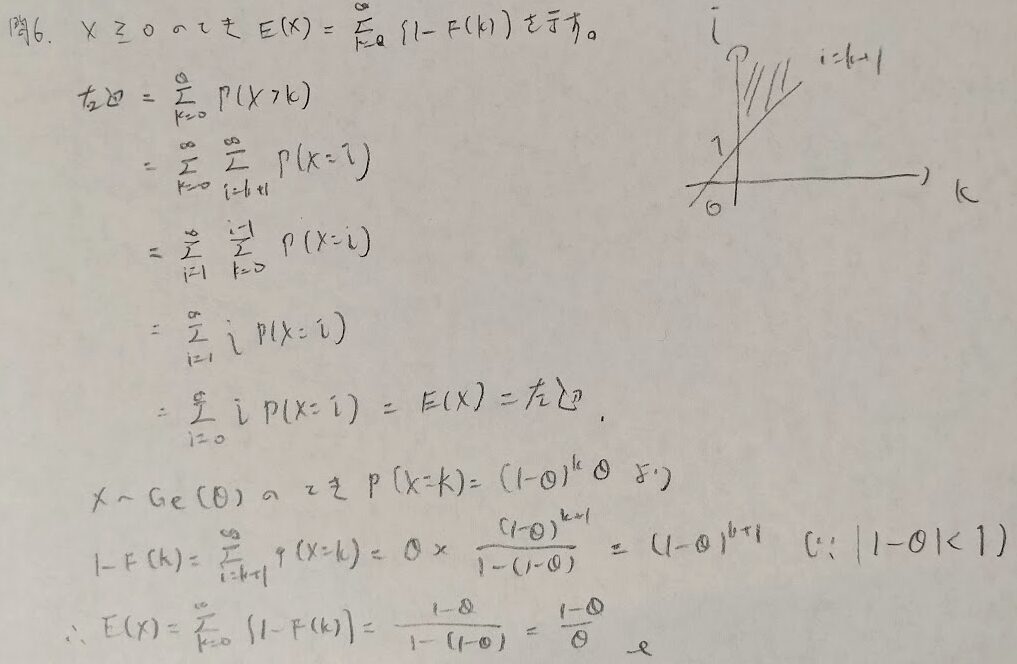 問6. X ≥ 0 のとき E(X) = Σ_{k=0}^{∞} {1-F(k)} を示す。
左辺 = Σ_{k=0}^{∞} P(X>k)
= Σ_{k=0}^{∞} Σ_{i=k+1}^{∞} P(X=i)
= Σ_{i=1}^{∞} Σ_{k=0}^{i-1} P(X=i)
= Σ_{i=1}^{∞} i P(X=i)
= Σ_{i=0}^{∞} i P(X=i) = E(X) = 左辺.
X~Ge(θ) のとき P(X=k) = (1-θ)^k θ より
1-F(k) = Σ_{i=k+1}^{∞} P(X=k) = θ × (1-θ)^{k+1} / 1-(1-θ) = (1-θ)^{k+1} (∵ |1-θ|<1)
∴ E(X) = Σ_{k=0}^{∞} {1-F(k)} = 1-θ / 1-(1-θ) = 1-θ / θ
i
i=k+1
1
0
k